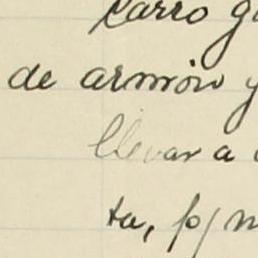 carro g
de armón y
llevar a
ta, p/